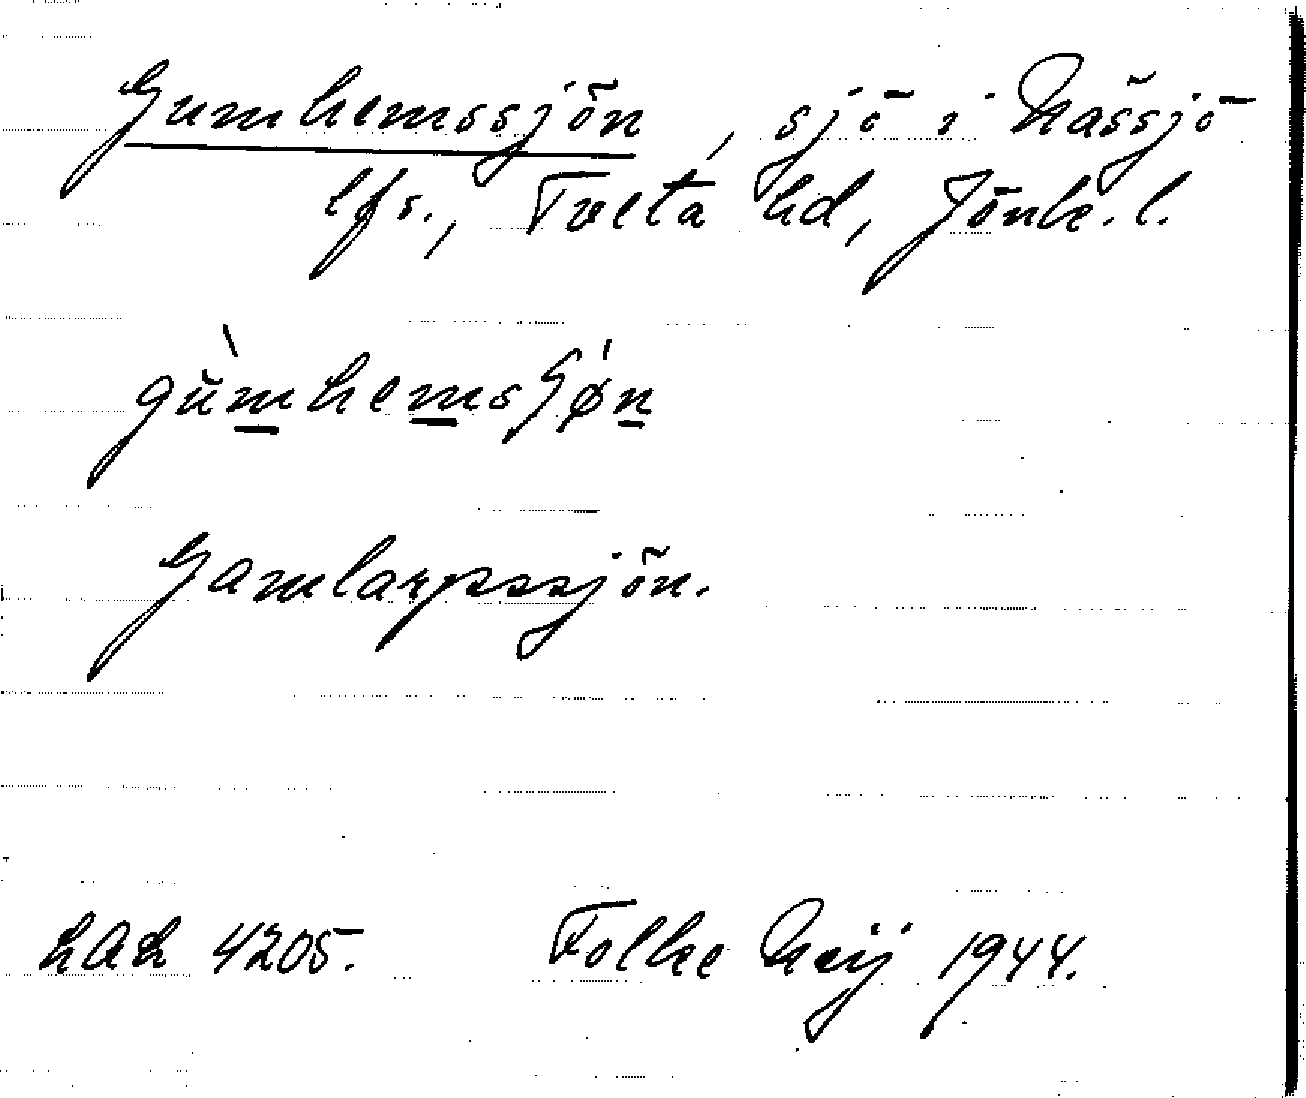 Gumhemssjön, sjö i Nässjö
lfs., Tveta hd, Jönk. l.
gùmhemsʃǿn
Gamlarpssjön.
HAK 4205. Folke Neij 1944.